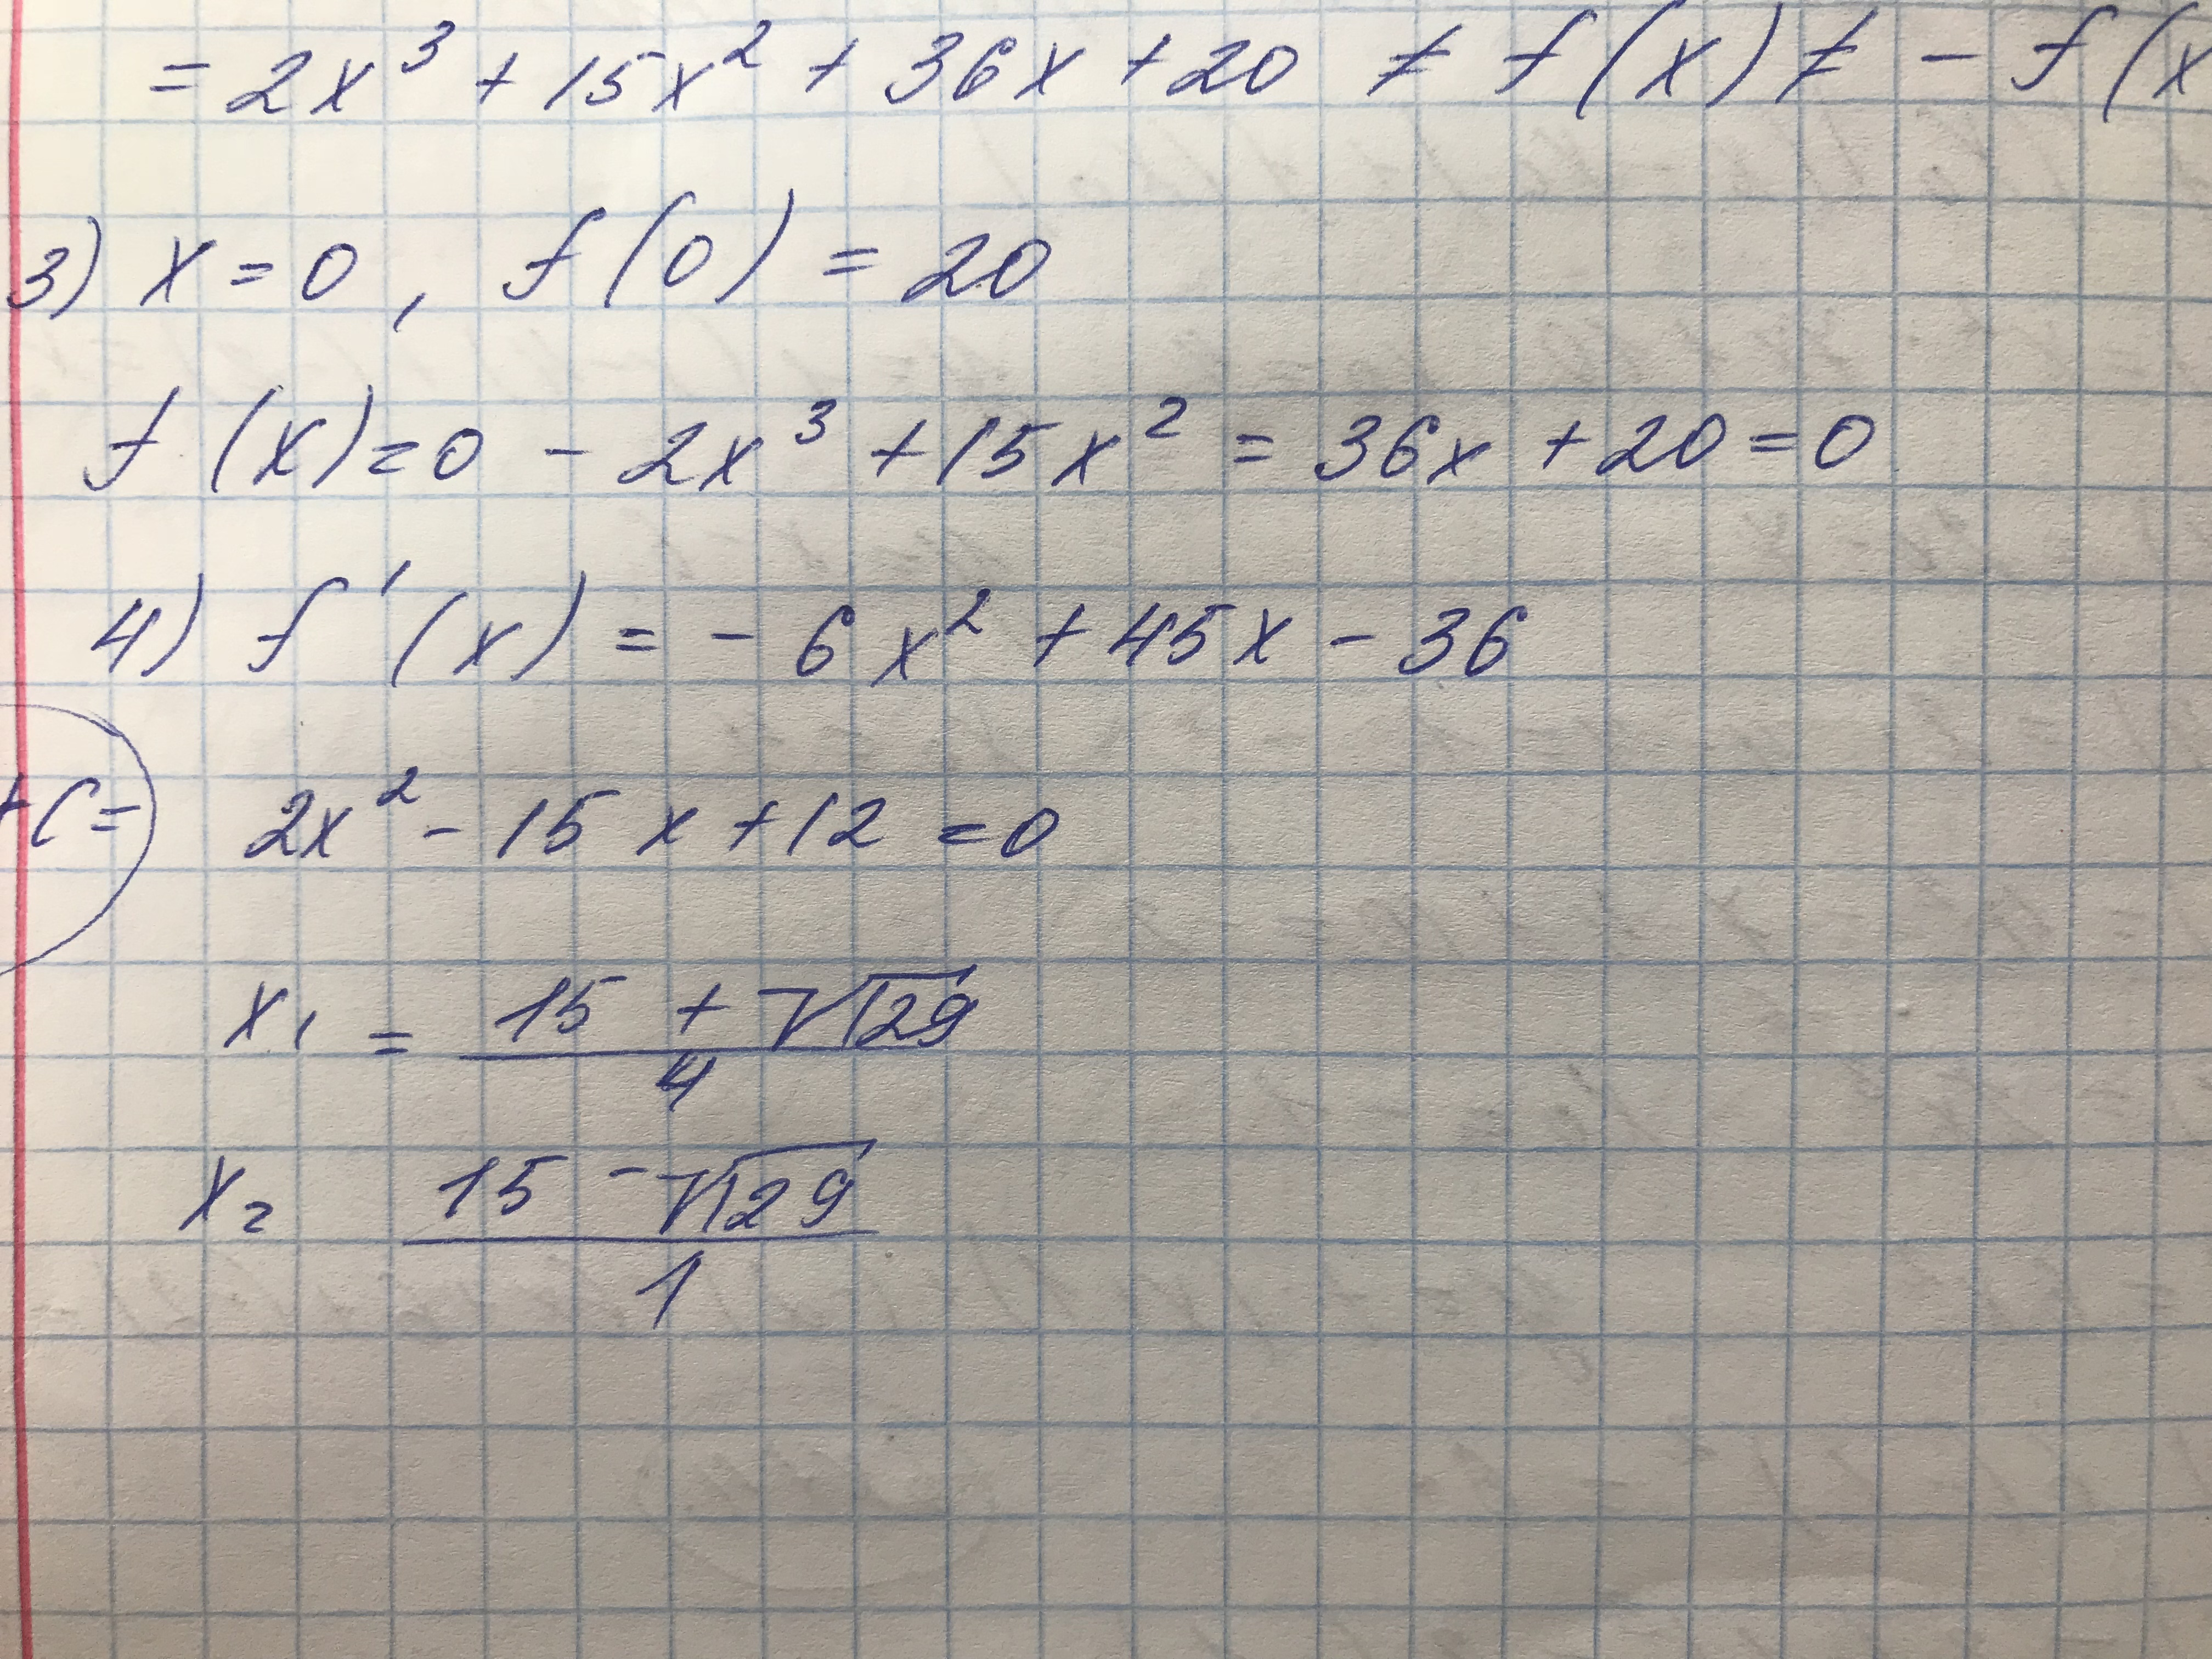 = 2x³ + 15x² + 36x + 20 ≠ f(x) ≠ - f(x
3) x = 0, f(0) = 20
f(x) = 0 - 2x³ + 15x² = 36x + 20 = 0
4) f'(x) = - 6x² + 45x - 36
+C=
2x² - 15x + 12 = 0
x₁ = (15 + √129)/4
x₂ (15 - √129)/1